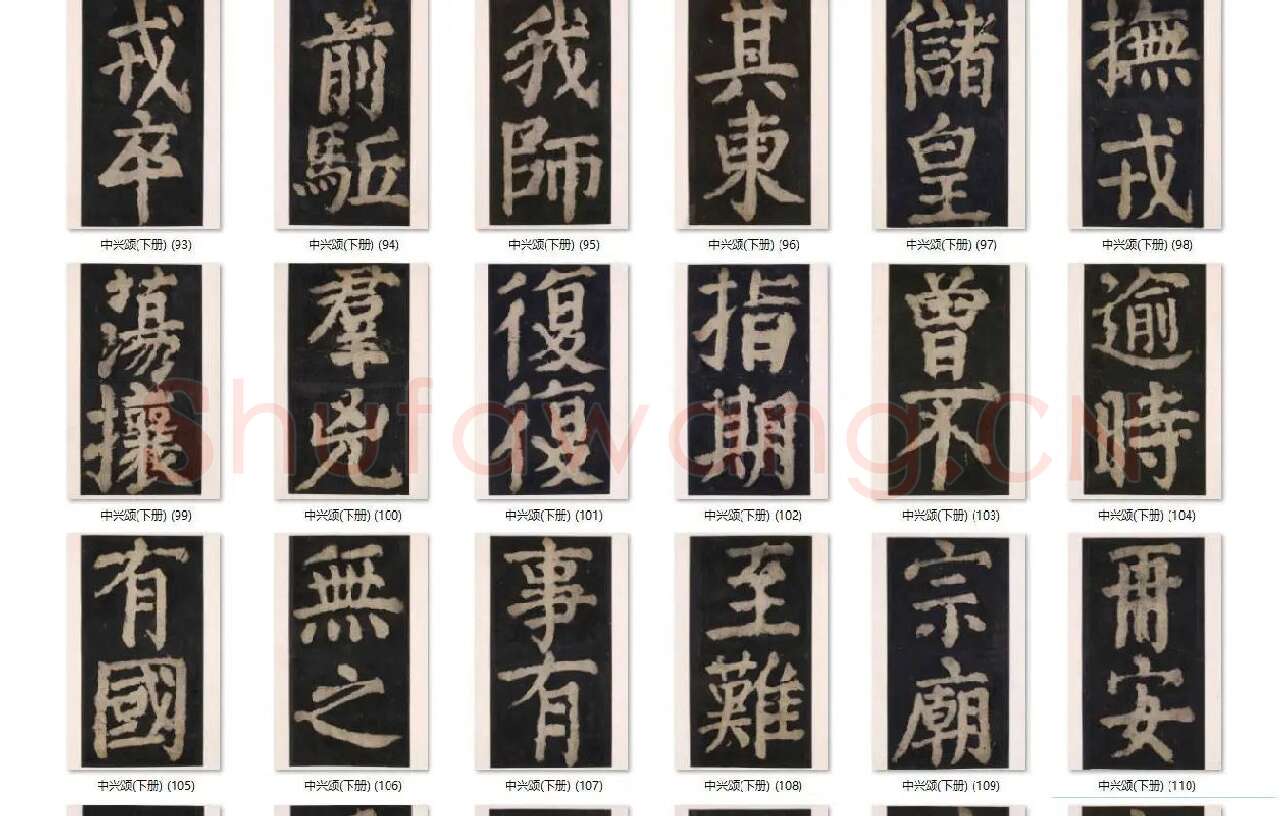 戎卒
前駈
我師
其東
儲皇
撫戎
中兴颂(下册) (93)
中兴颂(下册) (94)
中兴颂(下册) (95)
中兴颂(下册) (96)
中兴颂(下册) (97)
中兴颂(下册) (98)
蕩攘
羣兇
復復
指期
曾不
逾時
Shufawang.CN
中兴颂(下册) (99)
中兴颂(下册) (100)
中兴颂(下册) (101)
中兴颂(下册) (102)
中兴颂(下册) (103)
中兴颂(下册) (104)
有國
無之
事有
至難
宗廟
再安
中兴颂(下册) (105)
中兴颂(下册) (106)
中兴颂(下册) (107)
中兴颂(下册) (108)
中兴颂(下册) (109)
中兴颂(下册) (110)